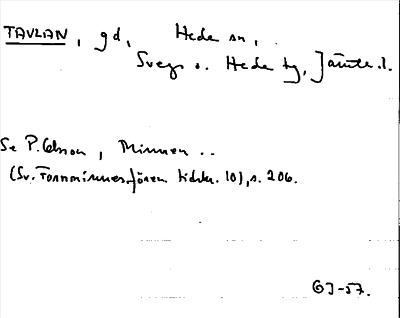 TAVLAN, gd, Hede sn,
Svegs o. Hede tg, Jämtl. l.
Se P. Olsson, Minnen ..
(Sv. Fornminnesfören. tidskr. 10), s. 206.
GJ-57.